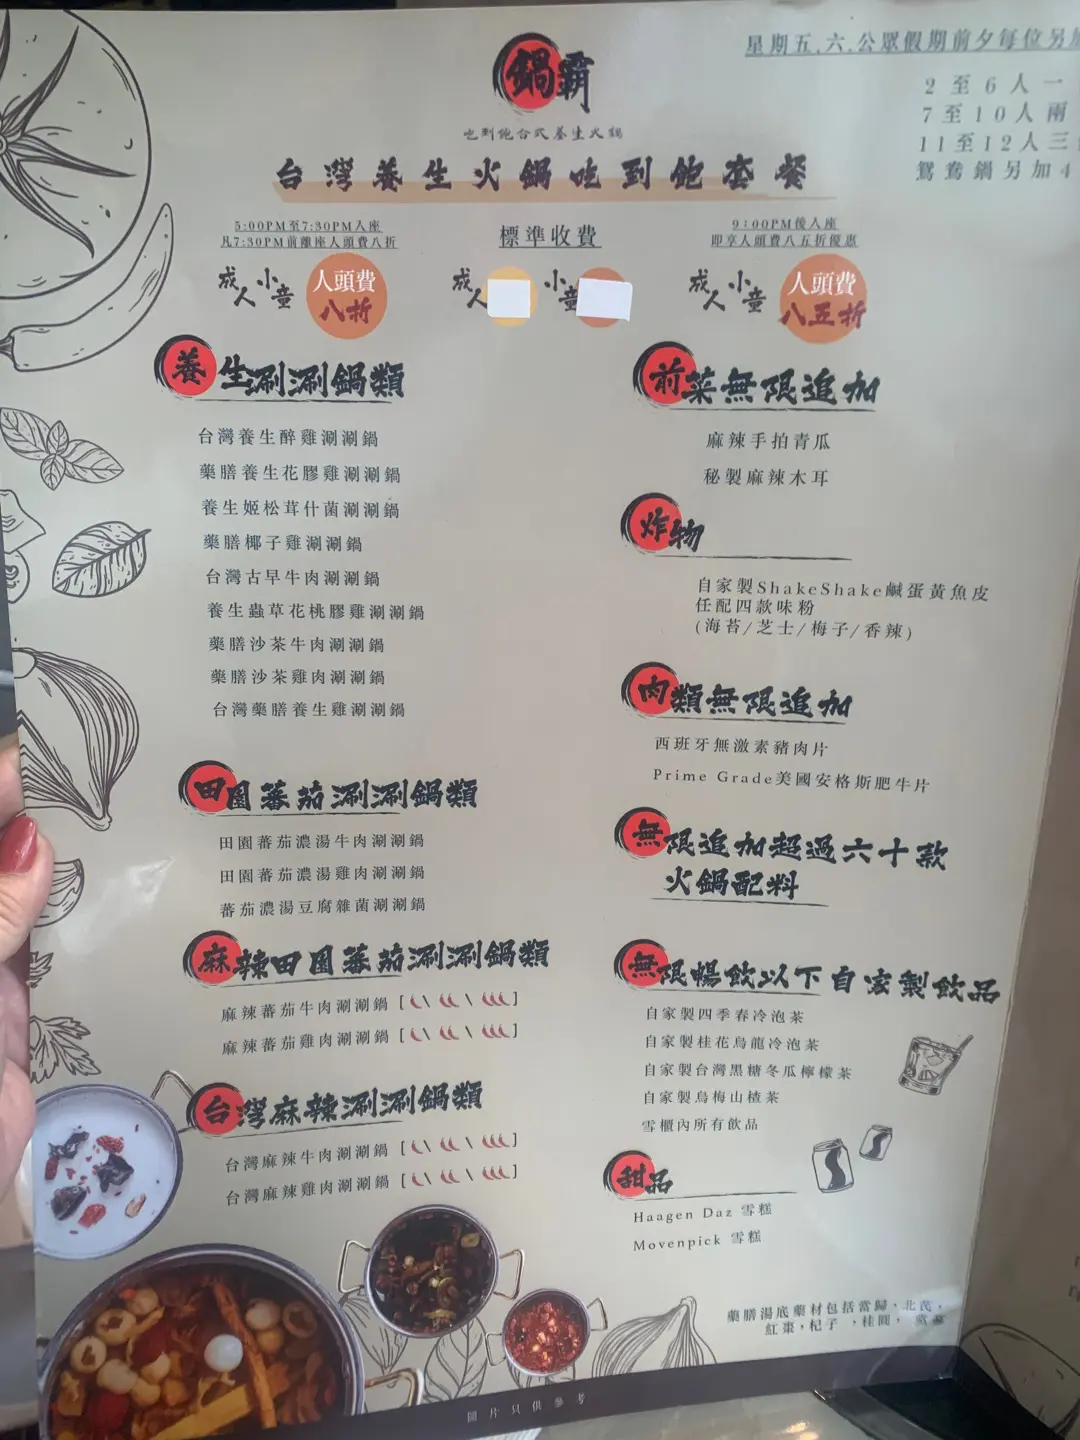 鍋霸
吃到飽台式養生火鍋
台灣養生火鍋吃到飽套餐
星期五.六.公眾假期前夕每位另加
2至6人一
7至10人兩
11至12人三
鴛鴦鍋另加4
5:00PM至7:30PM入座
凡7:30PM前離座人頭費八折
成人 小童
人頭費
八折
標準收費
成人 小童
9:00PM後入座
即享人頭費八五折優惠
成人 小童
人頭費
八五折
養生涮涮鍋類
台灣養生醉雞涮涮鍋
藥膳養生花膠雞涮涮鍋
養生姬松茸什菌涮涮鍋
藥膳椰子雞涮涮鍋
台灣古早牛肉涮涮鍋
養生蟲草花桃膠雞涮涮鍋
藥膳沙茶牛肉涮涮鍋
藥膳沙茶雞肉涮涮鍋
台灣藥膳養生雞涮涮鍋
田園蕃茄涮涮鍋類
田園蕃茄濃湯牛肉涮涮鍋
田園蕃茄濃湯雞肉涮涮鍋
蕃茄濃湯豆腐雜菌涮涮鍋
麻辣田園蕃茄涮涮鍋類
麻辣蕃茄牛肉涮涮鍋 [ \ \ ]
麻辣蕃茄雞肉涮涮鍋 [ \ \ ]
台灣麻辣涮涮鍋類
台灣麻辣牛肉涮涮鍋 [ \ \ ]
台灣麻辣雞肉涮涮鍋 [ \ \ ]
前菜無限追加
麻辣手拍青瓜
秘製麻辣木耳
炸物
自家製ShakeShake鹹蛋黃魚皮
任配四款味粉
(海苔/芝士/梅子/香辣)
肉類無限追加
西班牙無激素豬肉片
Prime Grade美國安格斯肥牛片
無限追加超過六十款
火鍋配料
無限暢飲以下自家製飲品
自家製四季春冷泡茶
自家製桂花烏龍冷泡茶
自家製台灣黑糖冬瓜檸檬茶
自家製烏梅山楂茶
雪櫃內所有飲品
甜品
Haagen Daz 雪糕
Movenpick 雪糕
藥膳湯底藥材包括當歸，北芪，
紅棗，杞子，桂圓，
圖片只供參考